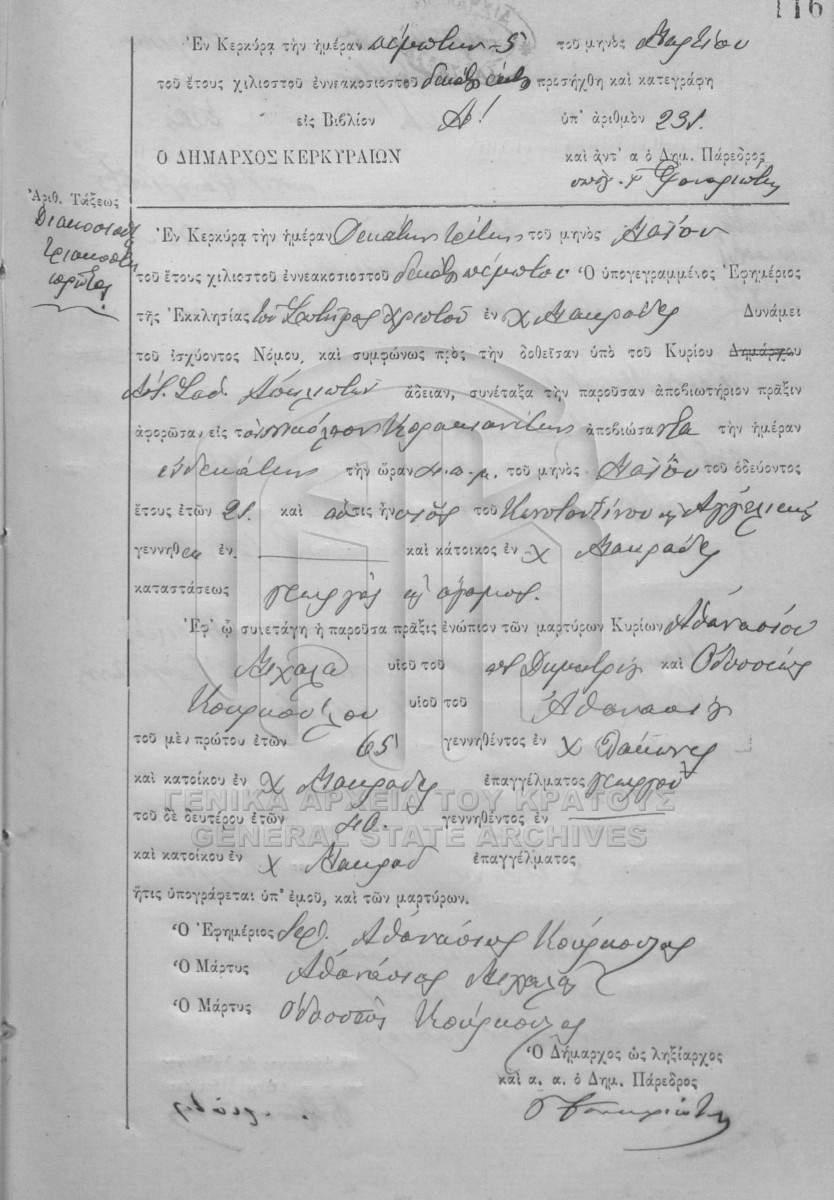 116
Ἐν Κερκύρᾳ τὴν ἡμέραν πέμπτην - 5 τοῦ μηνὸς Μαρτίου
τοῦ ἔτους χιλιοστοῦ ἐννεακοσιοστοῦ δεκάτου ἕκτου προσήχθη καὶ κατεγράφη
εἰς Βιβλίον Α! ὑπ' ἀριθμὸν 231.
Ο ΔΗΜΑΡΧΟΣ ΚΕΡΚΥΡΑΙΩΝ καὶ ἀντ' α ὁ Δημ. Πάρεδρος
Ἀριθ. Τάξεως
Διακοσιοστὴ
τριακοστὴ
πρώτη
Ἐν Κερκύρᾳ τὴν ἡμέραν Δεκάτην τρίτην τοῦ μηνὸς Μαΐου
τοῦ ἔτους χιλιοστοῦ ἐννεακοσιοστοῦ δεκάτου πέμπτου Ὁ ὑπογεγραμμένος Ἐφημέριος
τῆς Ἐκκλησίας τοῦ Σωτῆρος Χριστοῦ ἐν χ Μακράδες Δυνάμει
τοῦ ἰσχύοντος Νόμου, καὶ συμφώνως πρὸς τὴν δοθεῖσαν ὑπὸ τοῦ Κυρίου Δημάρχου
ἄδειαν, συνέταξα τὴν παροῦσαν ἀποβιωτήριον πρᾶξιν
ἀφορῶσαν εἰς τὸν ἀποβιώσαντα τὴν ἡμέραν
ἑνδεκάτην τὴν ὥραν τοῦ μηνὸς Μαΐου τοῦ ὁδεύοντος
ἔτους ἐτῶν 21 καὶ ὅστις ἦν υἱὸς τοῦ Κωνσταντίνου κ Ἀγγελικῆς
γεννηθεὶς ἐν καὶ κάτοικος ἐν χ Μακράδες
καταστάσεως γεωργὸς κ ἄγαμος.
Ἐφ' ᾧ συνετάγη ἡ παροῦσα πρᾶξις ἐνώπιον τῶν μαρτύρων Κυρίων Ἀθανασίου
Μιχαλᾶ υἱοῦ τοῦ Δημητρίου καὶ Ὀδυσσέως
Κούρκουλου υἱοῦ τοῦ Ἀθανασίου
τοῦ μὲν πρώτου ἐτῶν 65 γεννηθέντος ἐν χ Λάκωνες
καὶ κατοίκου ἐν χ Μακράδες ἐπαγγέλματος γεωργοῦ
ΓΕΝΙΚΑ ΑΡΧΕΙΑ ΤΟΥ ΚΡΑΤΟΥΣ
τοῦ δὲ δευτέρου ἐτῶν 40. γεννηθέντος ἐν
GENERAL STATE ARCHIVES
καὶ κατοίκου ἐν χ Μακράδ ἐπαγγέλματος
ἥτις ὑπογράφεται ὑπ' ἐμοῦ, καὶ τῶν μαρτύρων.
Ὁ Ἐφημέριος Ἱερ. Ἀθανάσιος Κούρκουλος
Ὁ Μάρτυς Ἀθανάσιος Μιχαλᾶς
Ὁ Μάρτυς Ὀδυσσεὺς Κούρκουλος
Ὁ Δήμαρχος ὡς ληξίαρχος
καὶ α. α. ὁ Δημ. Πάρεδρος